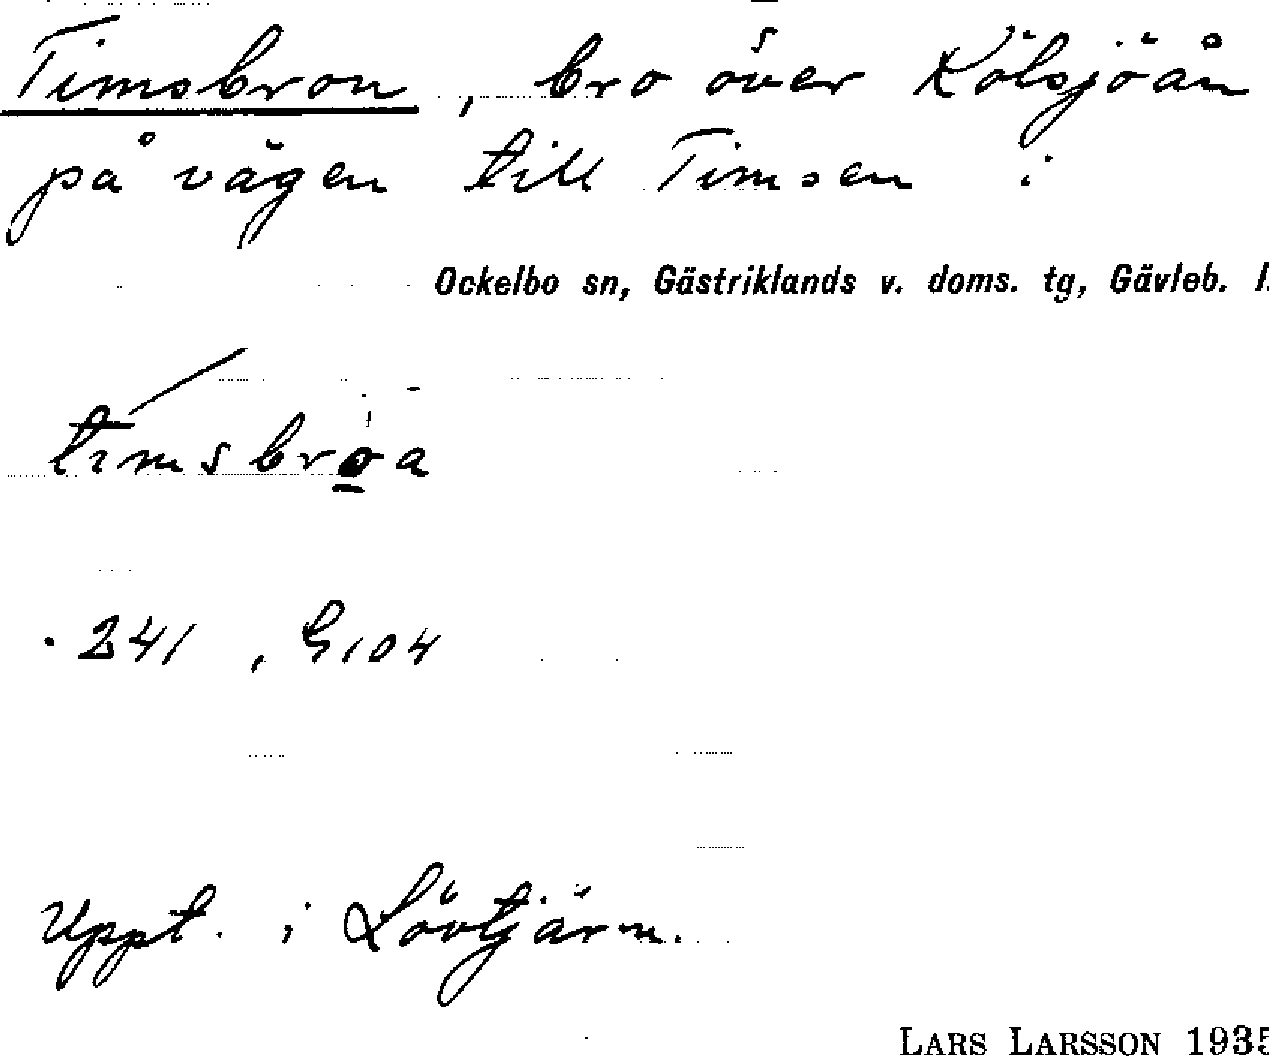 Timsbron, bro över Kölsjöån
på vägen till Timsen i
Ockelbo sn, Gästriklands v. doms. tg, Gävleb. l.
timsbroa
241, G104
Uppt. i Lövtjärn.
LARS LARSSON 1935